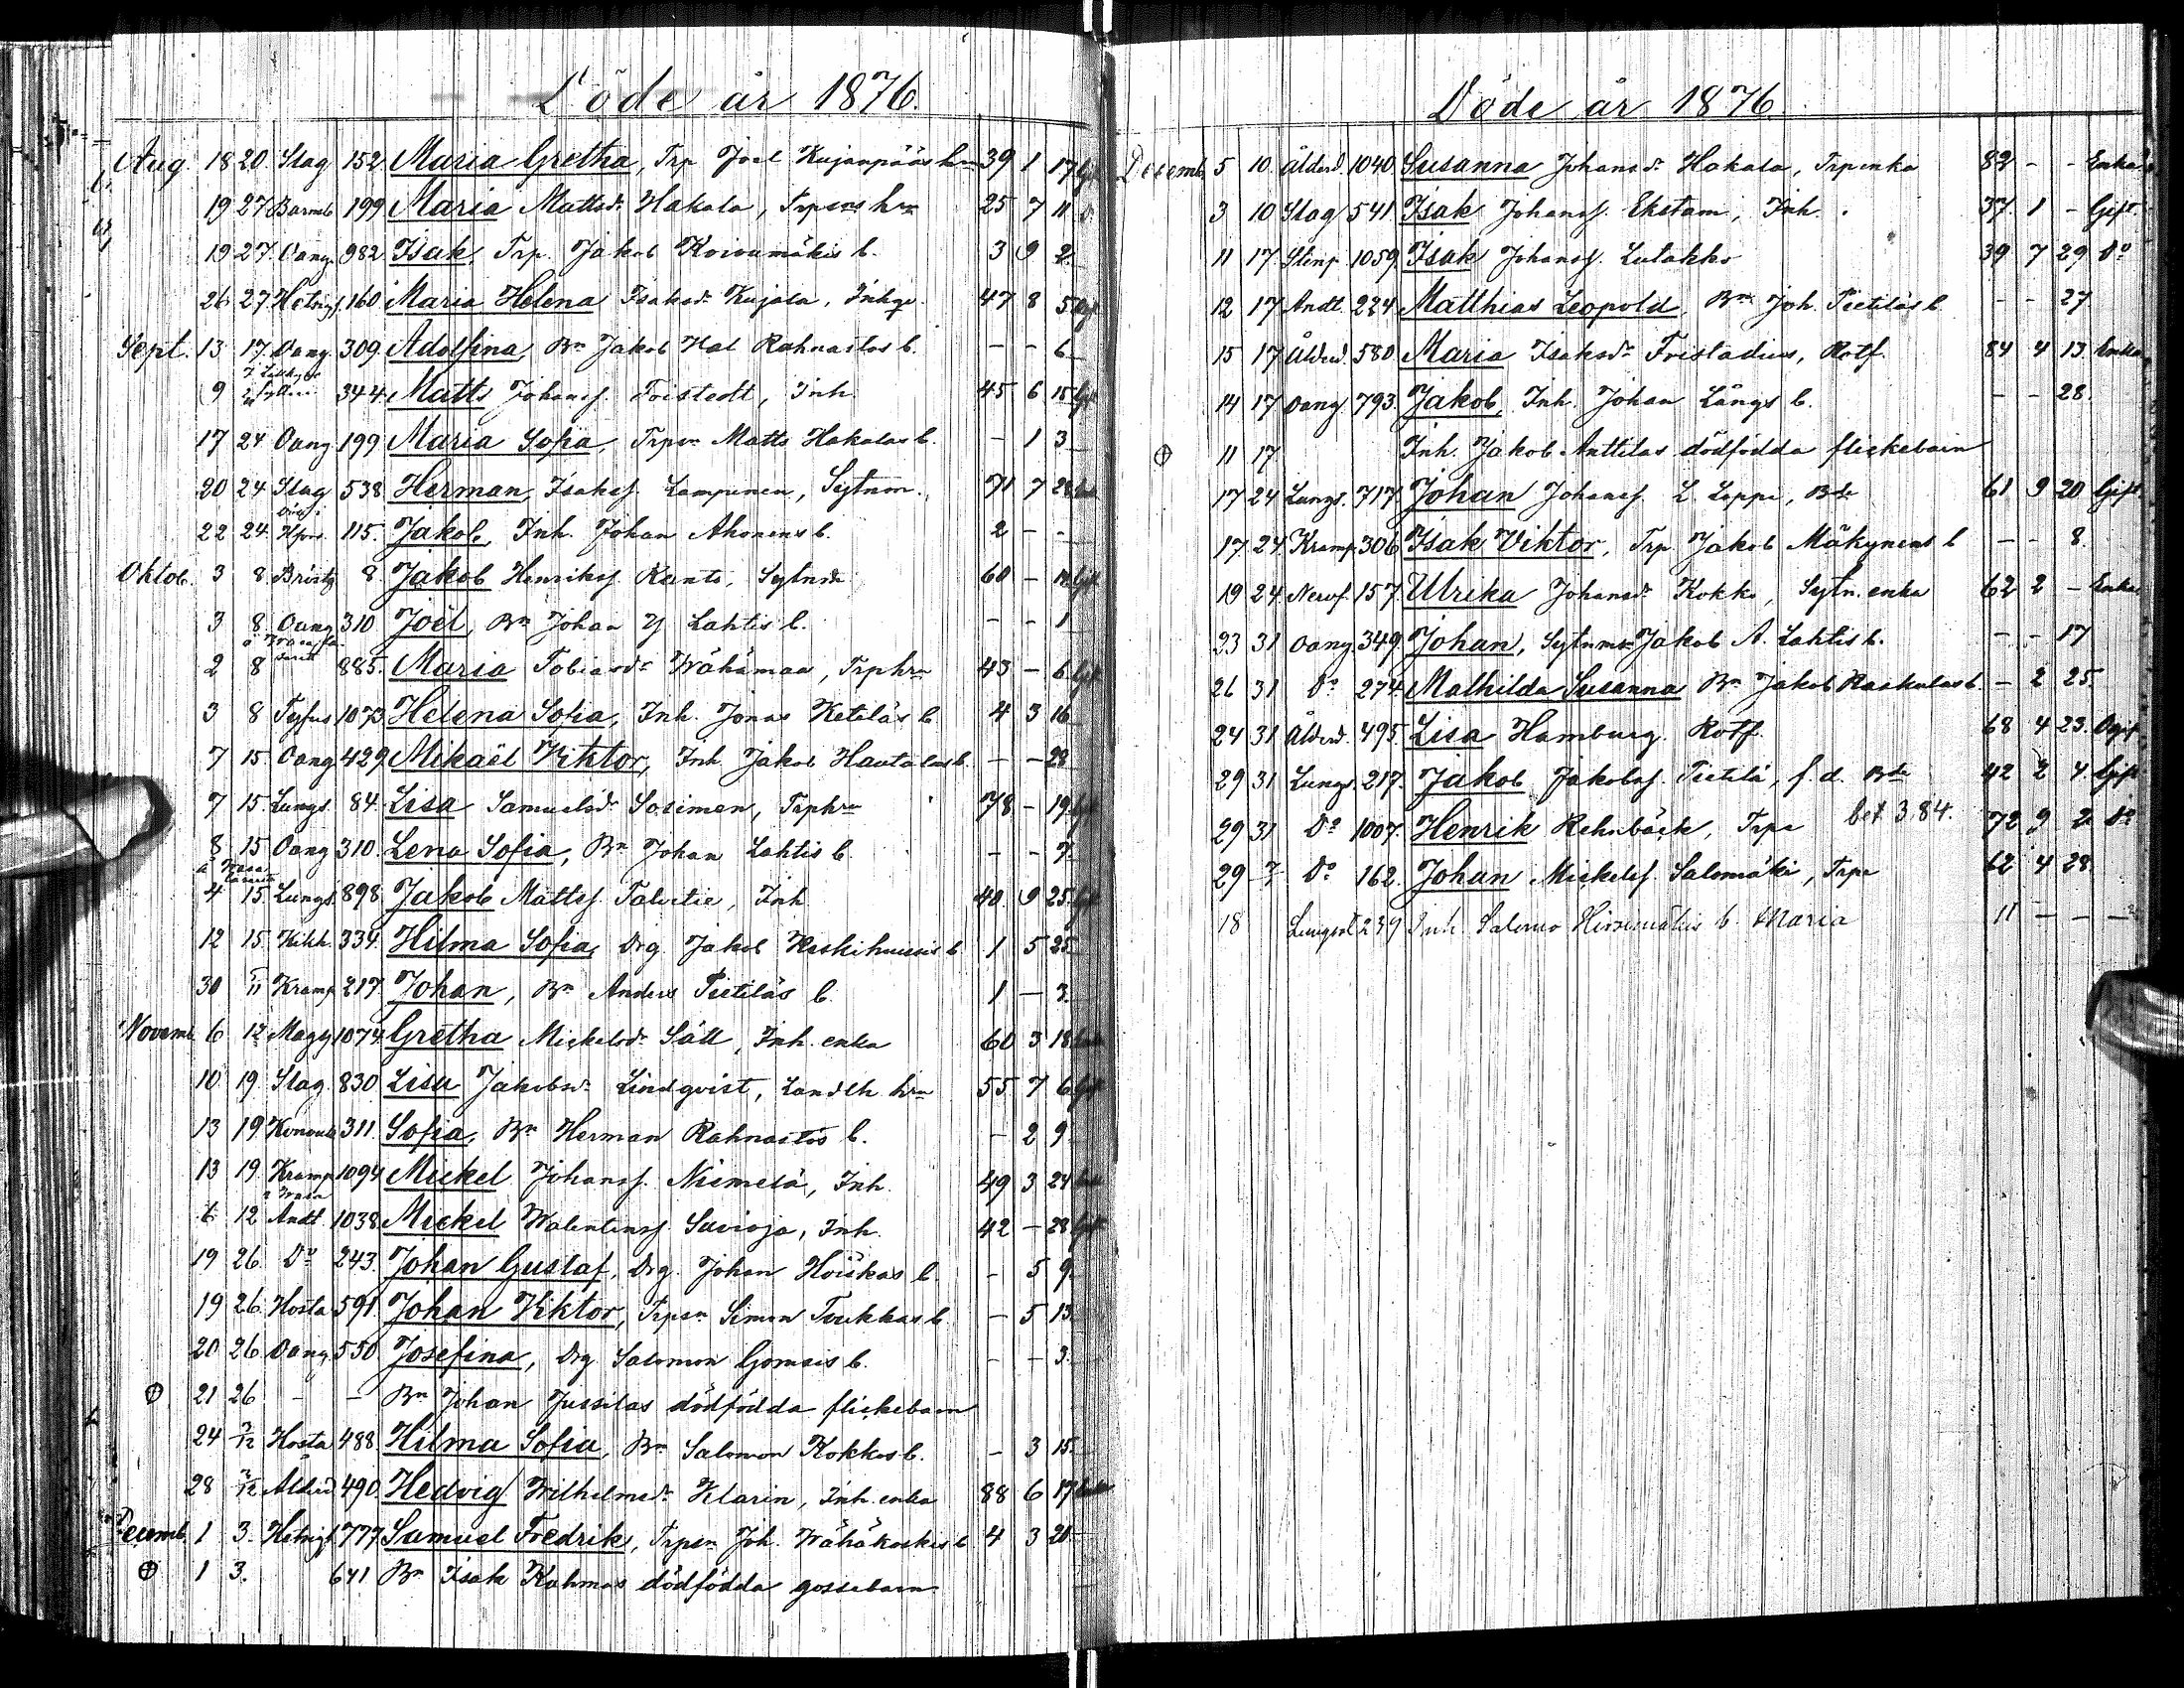 Döde år 1876.
Aug. 18 20. Slag 152. Maria Gretha, Trp Joel Kujanpääs hru 39 1 17 Gift
19 27 Barnsb 199 Maria Mattsdr Hakala, Trpens hru 25 7 11 Do
19 27. Oang. 982 Isak, Trp. Jakob Koivumäkis b. 3 9 2.
26 27 Hetsigf. 160. Maria Helena Isaksdr Kujala, Inhqv. 47 8 5 Gift
Sept. 13 17. Oang. 309. Adolfina, Bn Jakob Hal Rahnastos b. - - 6
9 344. Matts Johansf. Toistedt, Inh. 45 6 15 Gift
17 24 Oang 199 Maria Sofia, Trpn Matts Hakalas b. - 1 3
20 24 Slag 538 Herman, Isaksf. Lampinen, Sytnm. 71 7 28
22 24. 115. Jakob, Inh. Johan Ahonens b. 2 - -
Oktob. 3 8. 8. Jakob Henriksf. Kanto, Sytn 60 - Gift
3 8. Oang 310 Joël, Bn Johan Y Lahtis b. - - 1
2 8 885. Maria Tobiasdr Wähämaa, Trphru 43 - 6 Gift
3 8 Tyfus 1073 Helena Sofia, Inh. Jonas Ketoläs b. 4 3 16
7 15. Oang 429 Mikaël Viktor, Inh. Jakob Hautalas b. - - 28
7 15. Lungs. 84. Lisa Samuelsdr Sorimen, Trphru 78 - 19 Gift
8 15 Oang 310. Lena Sofia, Bn Johan Lahtis b. - - 7.
4 15. Lungs 898 Jakob Mattsf. Talvitie, Inh 40. 9 25 Gift
12 15. Kikh. 334. Hilma Sofia, Drg Jakob Keskihuusis b 1 5 25.
30 5/11 Kramp 217 Johan, Bn Anders Pietiläs b. 1 - 3.
Novemb 6 12 Magg 1074 Gretha Mickelsdr Säll, Inh. enka 60 3 18
10 19. Slag. 830 Lisa Jakobsdr Lindqvist, hru 55 7 6 Gift
13 19 311. Sofia, Bn Herman Rahnastos b. - 2 9
13 19. Kramp 1094 Mickel Johansf. Niemelä, Inh. 49 3 24
6 12 Andt. 1038 Mickel Walentinsf. Savioja, Inh. 42 - 28 Gift
19 26. Do 243. Johan Gustaf, Drg. Johan Höiskas b. - 5 9.
19 26. Hosta 591. Johan Viktor, Trpsn Simon Tuukkas b. - 5 13
20 26. Oang, 550 Josefina, Drg Salomon Gomsis b. - - 3.
21 26 - - Bn Johan Jussilas dödfödda flickebarn
24 3/12 Hosta 488. Hilma Sofia, Bn Salomon Kokkos b. - 3 15.
28 3/12 Ålderd 490. Hedvig Wilhelmsdr Klarin, Inh. enka 88 6 17 Enka
Decemb. 1 3. Hetsigf 777 Samuel Fredrik, Trpsn Joh. Wähäkoskis b 4 3 20.
1 3. 641 Bn Isak Kuhmas dödfödda gossebarn
Döde år 1876.
Decemb. 5 10. Ålderd. 1040. Susanna Johansdr Hakala, Trpenka 82 - - Enka
3 10 Slag 541. Isak Johansf. Ekstam, Inh. 37. 1 - Gift
11 17. 1059. Isak Johansf. Lutakko 39 7 29 Do
12 17 Andt. 224 Matthias Leopold, Bn Joh. Pietiläs b - - 27
15 17 Ålderd. 580 Maria Isaksdr Fristadius, Rotf. 84 4 13. Enka
14 17 Oang. 793. Jakob, Inh. Johan Långs b. - - 28.
11 17 Inh. Jakob Anttilas dödfödda flickebarn
17 24 Lungs. 717. Johan Johansf. L. Loppi, Bde 61 9 20 Gift
17 24 Kramp 306 Isak Viktor, Trp. Jakob Mäkynens b - - 8.
19 24 Nervf. 157. Ulrika Johansdr Kokko, Sytn. enka 62 2 - Enka
23 31 Oang. 349. Johan, Sytnms Jakob A. Lahtis b. - - 17
26 31 Do 274. Mathilda Susanna Bn Jakob Raskulas b. - 2 25.
24 31 Ålderd. 495. Lisa Hamburg. Rotf. 68 4 23. Ogift
29 31 Lungs. 217. Jakob Jakobsf. Pietilä, f. d. Bde 42 2 4. Gift
29 31 Do 1007. Henrik Rehnbäck, Trpe bet 3.84. 72 9 2 Do
29 Do 162. Johan Mickelsf. Salomäki, Trpe 62 4 28.
18 Lungsot 239 Inh. Salomo b. Maria 11 - - -